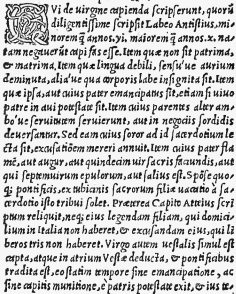 QVi de uirgine capienda scripserunt, quorũ
diligentissime scripsit Labeo Antistius, mi
norem q̃ annos. vi. maiorem q̃ annos. x. na
tam negauerũt capi fas esse. Item quæ non sit patrima,
& matrima. Item quæ lingua debili, sensu'ue aurium
deminuta, alia'ue qua corporis labe insignita sit. Item
quæ ipsa, aut cuius pater emancipatus sit, etiam si uiuo
patre in aui potestate sit. Item cuius parentes alter am
bo'ue seruitutem seruierunt, aut in negociis sordidis
deuersantur. Sed eam cuius soror ad id sacerdotium le
cta sit, excusationem mereri aiunt. Item cuius pater fla
mẽ, aut augur, aut quindecim uir sacris faciundis, aut
qui septemuirum epulonum, aut salius est. Spõsæ quo
q; pontificis, ex tubicinis sacrorum filiæ uacatio à sa
cerdotio isto tribui solet. Præterea Capito Atteius scri
ptum reliquit, neq; eius legendam filiam, qui domici
lium in Italia non haberet, & excusandam eius, qui li
beros tris non haberet. Virgo autem uestalis simul est
capta, atque in atrium Vestæ deducta, & pontificibus
tradita est, eo statim tempore sine emancipatione, ac
sine capitis munitione, è patris potestate exit, & ius te